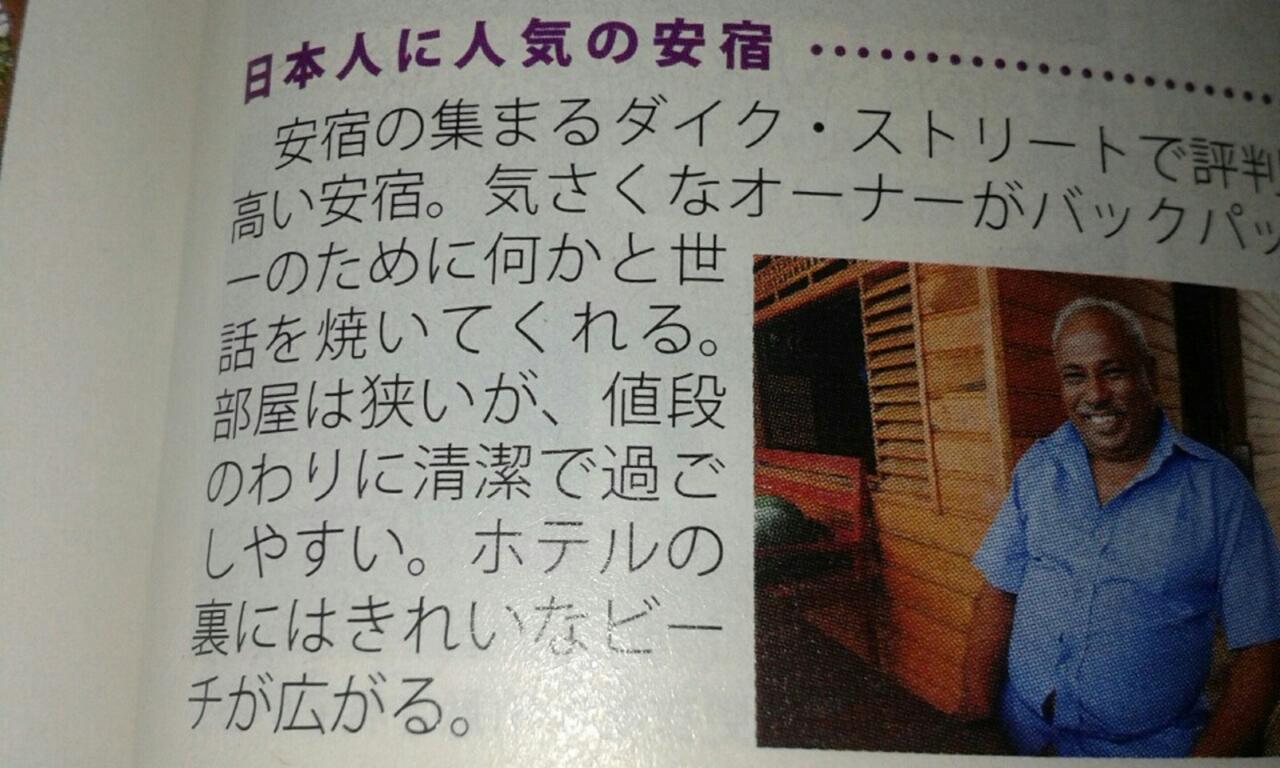 日本人に人気の安宿
安宿の集まるダイク・ストリートで評判
高い安宿。気さくなオーナーがバックパッ
ーのために何かと世
話を焼いてくれる。
部屋は狭いが、値段
のわりに清潔で過ご
しやすい。ホテルの
裏にはきれいなビー
チが広がる。